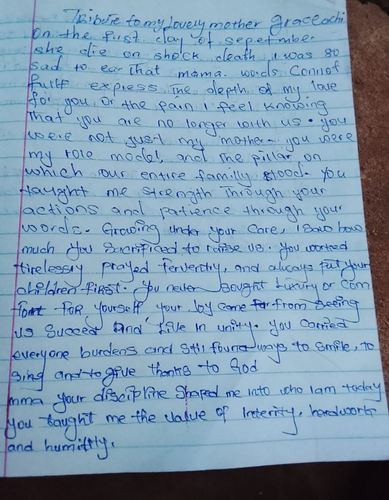 Tribute to my lovely mother graceachi
on the first day of sepetember
she die on shock death, i was so
sad to ear that mama. words Cannot
fully express The depth of my love
for you, or the pain i feel knowing
that you are no longer with us. you
were not just my mother- you were
my role model, and the pillar on
which our entire family stood. You
taught me strength Through your
actions and patience through your
words. Growing under your Care, I saw how
much you sacrificed to raise us. You worked
tirelessly prayed ferverntly, and always put your
children first. You never sought luxury or com
fort for yourself your joy came from seeing
us succeed and live in unity. You carried
everyone burdens and still found ways to smile, to
sing and to give thanks to God
mma your discipline Shaped me into who I am today
you taught me the value of Interity, hardwork
and humiltiy.